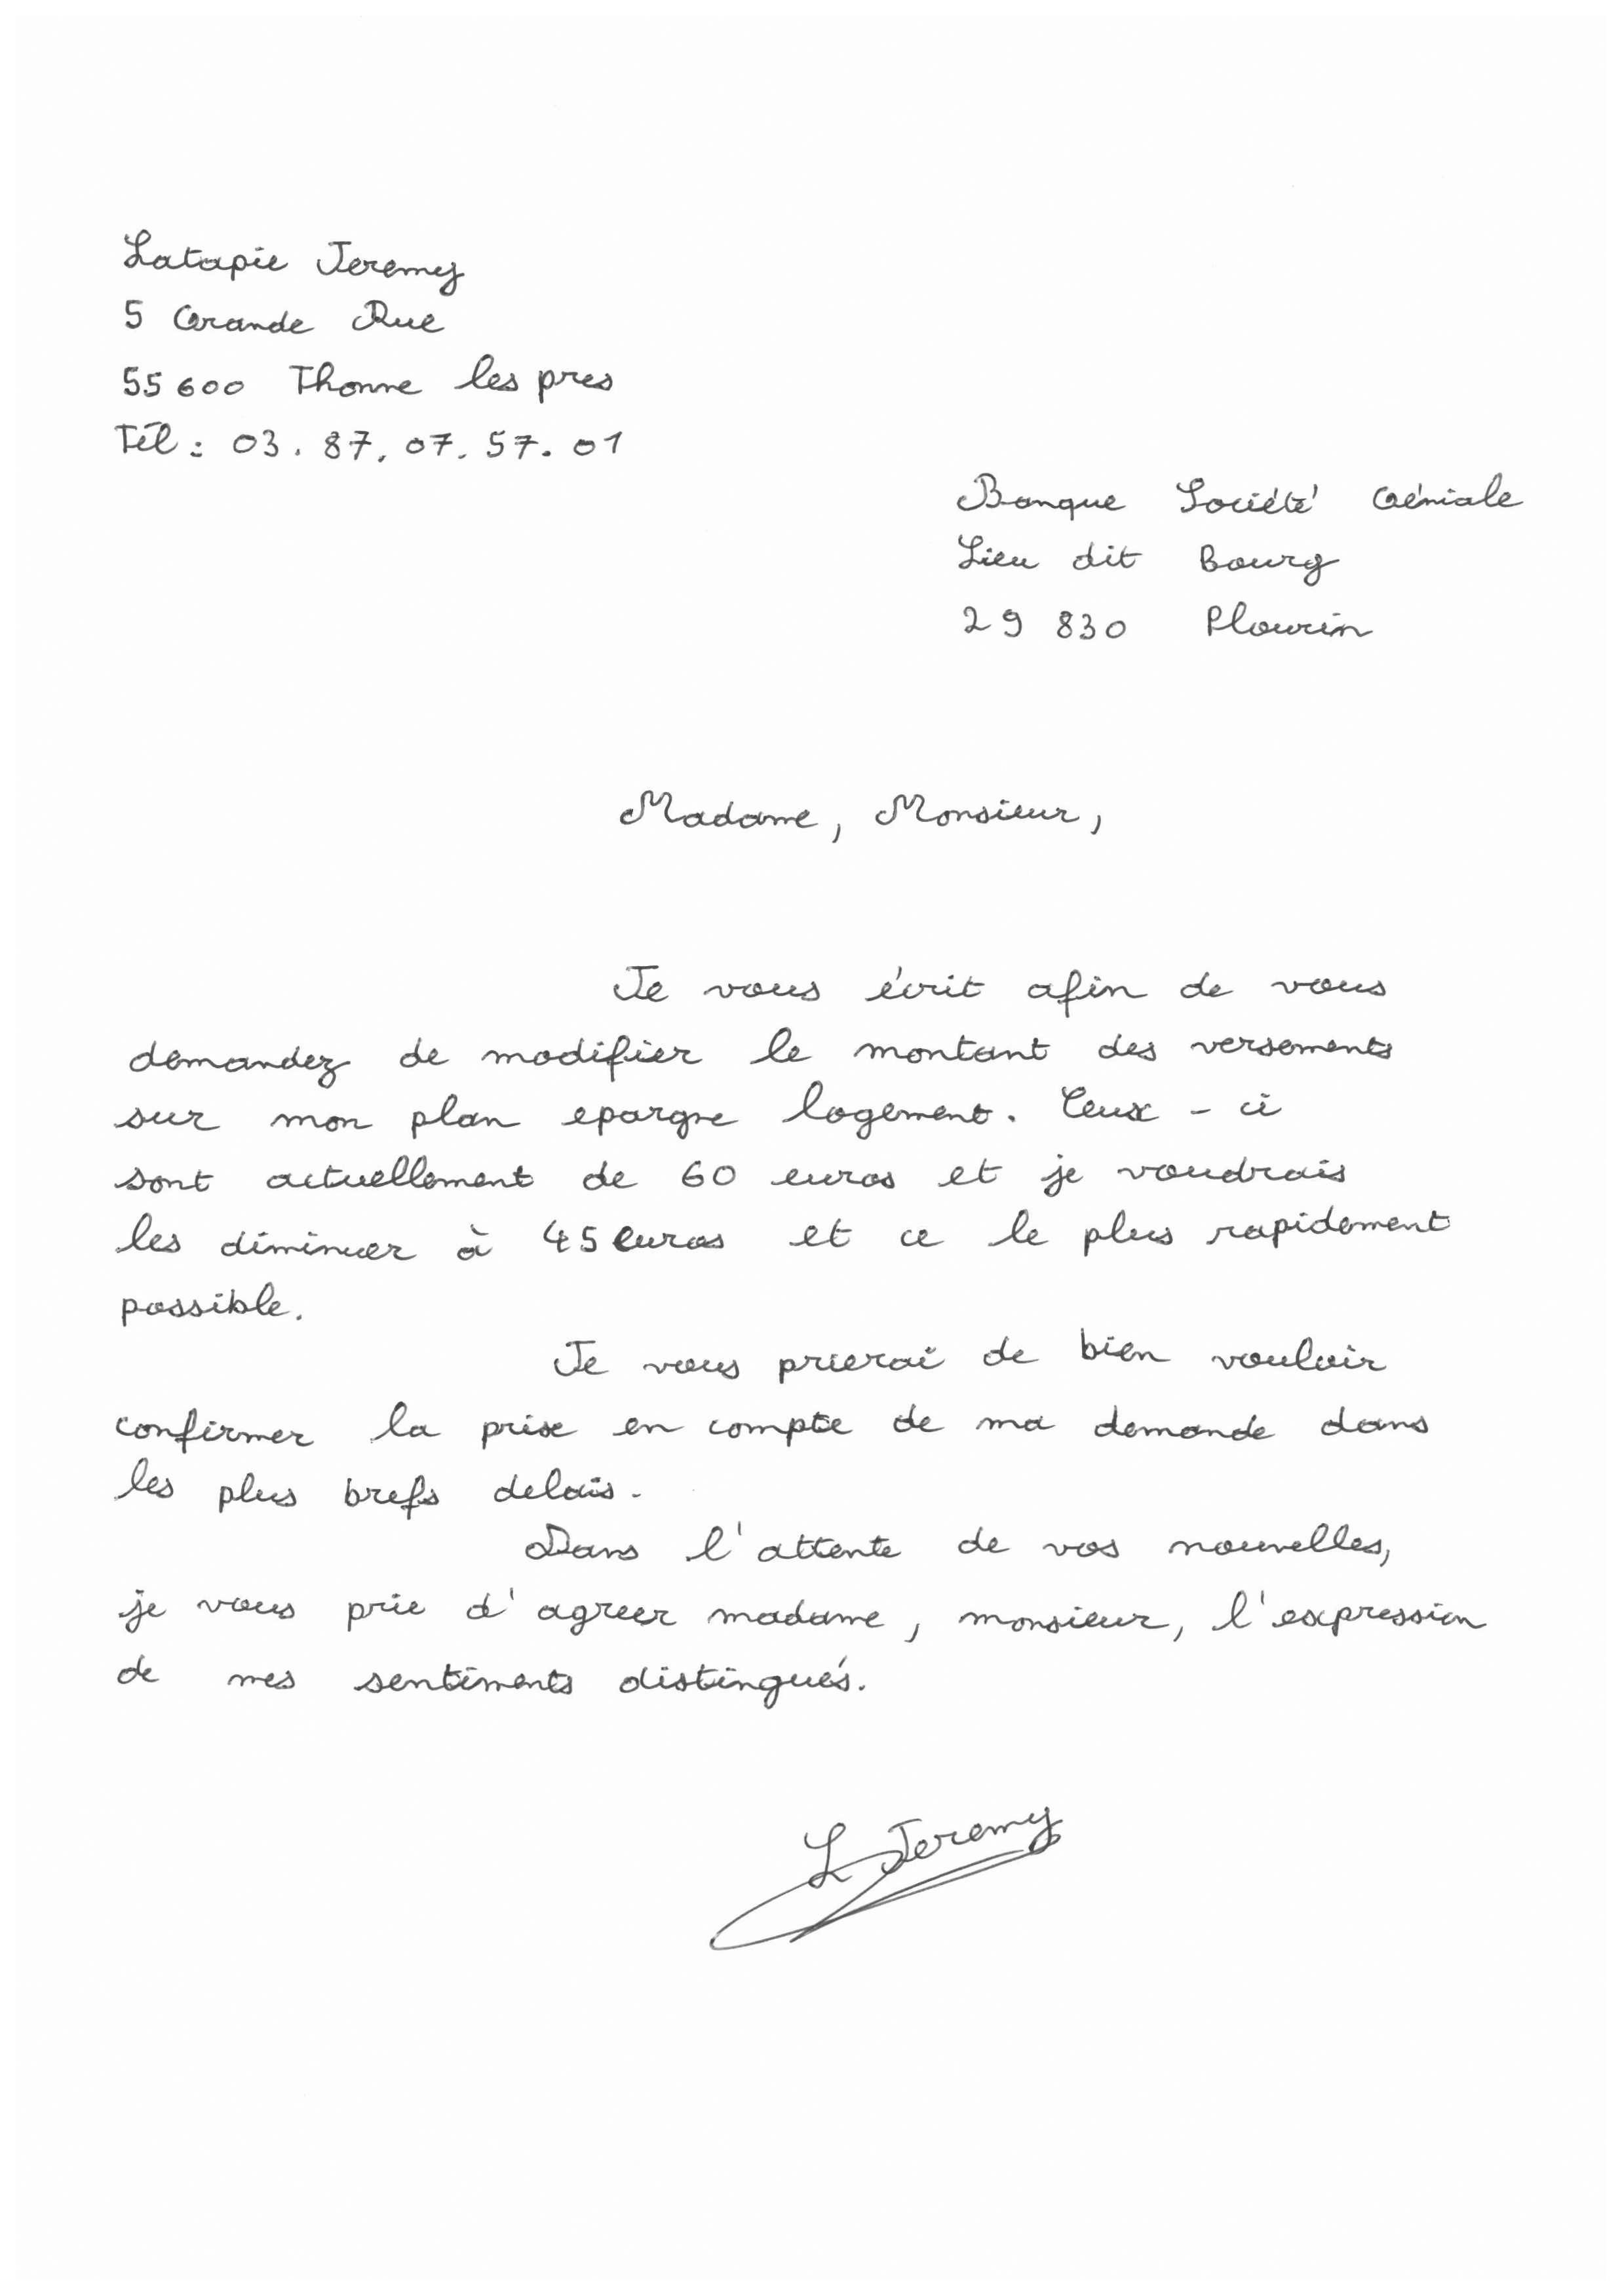 Latapie Jeremy
5 Grande Rue
55600 Thonne les pres
Tél : 03. 87. 07. 57. 01
Banque Société Géniale
Lieu dit Bourg
29 830 Plourin
Madame, Monsieur,
Je vous écrit afin de vous
demandez de modifier le montant des versements
sur mon plan epargne logement. Ceux - ci
sont actuellement de 60 euros et je voudrais
les diminuer à 45 euros et ce le plus rapidement
possible.
Je vous prierai de bien vouloir
confirmer la prise en compte de ma demande dans
les plus brefs delais.
Dans l'attente de vos nouvelles,
je vous prie d'agreer madame, monsieur, l'expression
de mes sentiments distingués.
L Jeremy